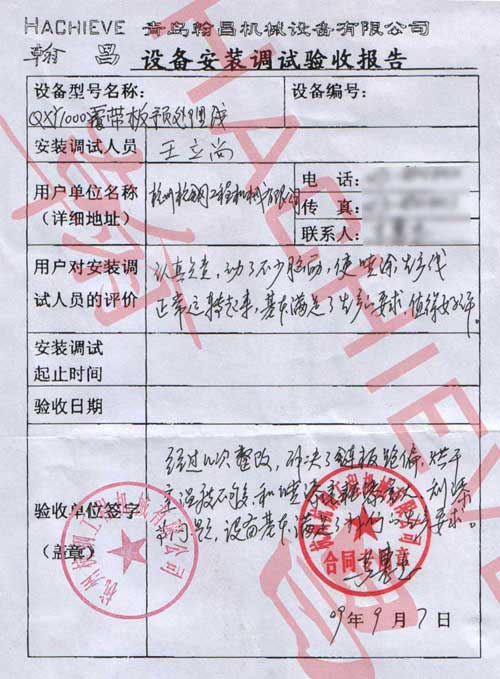 HACHIEVE 青岛翰昌机械设备有限公司
翰昌 设备安装调试验收报告
设备型号名称:
设备编号:
QXY1000履带板预处理线
安装调试人员
王立尚
用户单位名称
(详细地址)
杭州杭钢工程机械有限公司
电 话:
传 真:
联系人:
用户对安装调
试人员的评价
认真负责,动了不少脑筋,使喷涂生产线
正常运转起来,基本满足了生产要求,值得好评。
安装调试
起止时间
验收日期
验收单位签字
(盖章)
经过几次整改,解决了链板跑偏,烘干
室温度不够,和喷漆
等问题,设备基本满足了我们的生产要求。
杭州杭钢工程机械有限公司
合同专用章
09年9月7日
HACHIEVE
翰昌